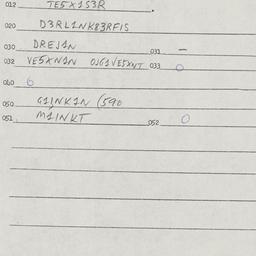 012 TE5X1S3R .
020 D3RL1NK83RFIS
030 DREJ1N 031 –
032 VE5XN1N OJG1VE5XNT 033 0
060 6
050 G1INK1N (590
051 M1INKT 052 0